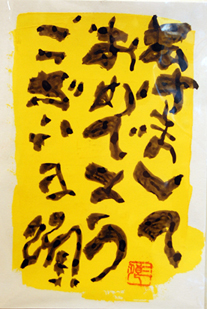 あけまして
おめでとう
ござい